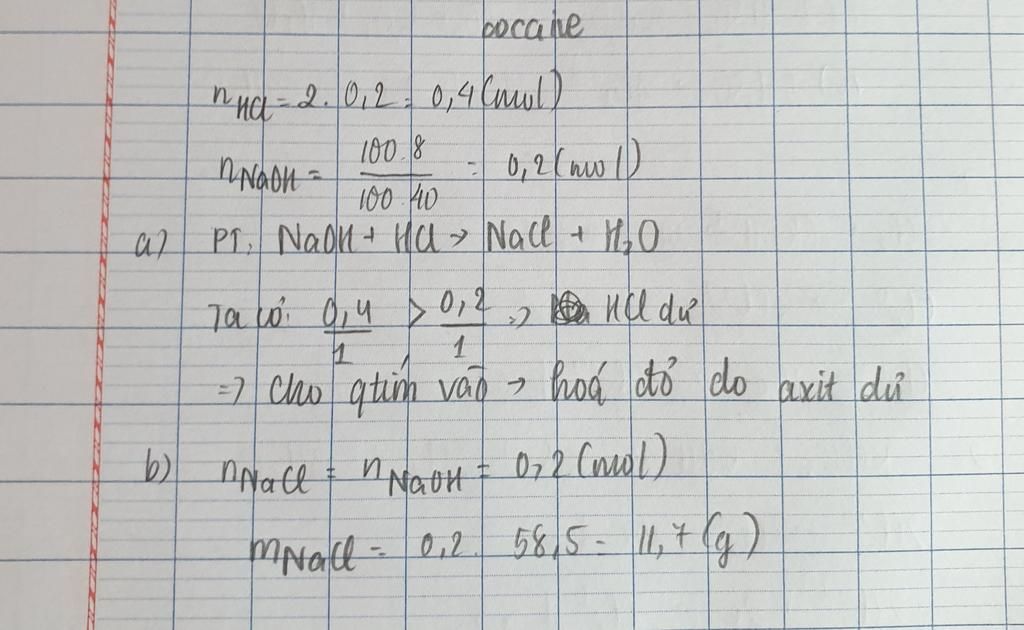 cocaine
n HCl = 2. 0,2 = 0,4 (mol)
n NaOH = 100.8 / 100.40 = 0,2 (mol)
a) PT: NaOH + HCl → NaCl + H₂O
Ta có: 0,4/1 > 0,2/1 => HCl dư
=> Cho qtím vào → hoá đỏ do axit dư
b) n NaCl = n NaOH = 0,2 (mol)
m NaCl = 0,2. 58,5 = 11,7 (g)